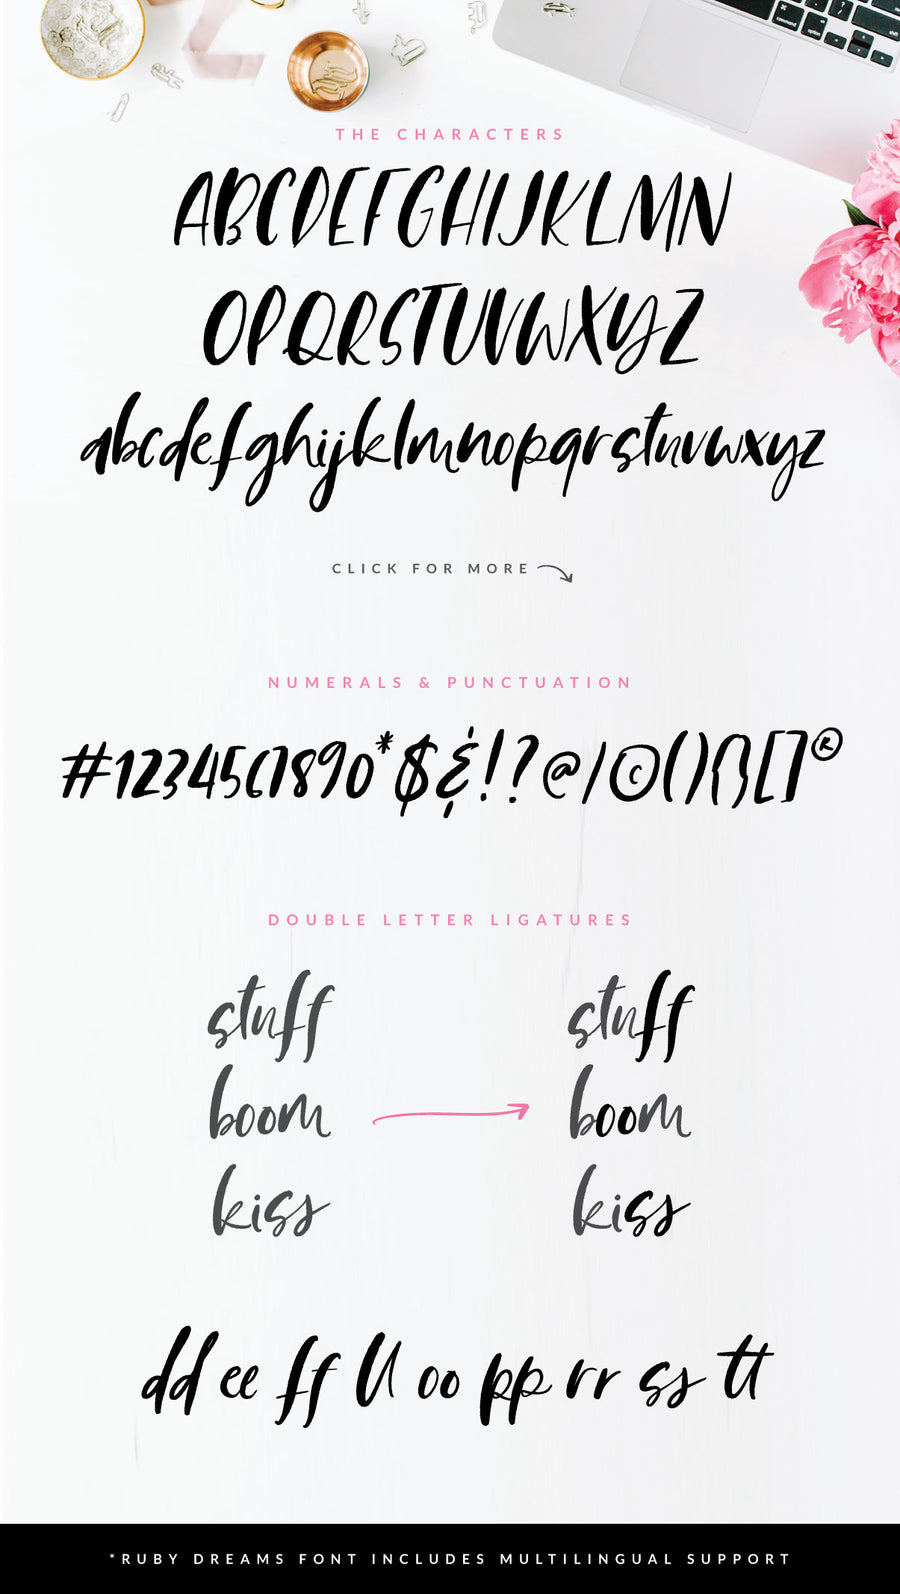 THE CHARACTERS
ABCDEFGHIJKLMN
OPQRSTUVWXYZ
abcdefghijklmnopqrstuvwxyz
CLICK FOR MORE
NUMERALS & PUNCTUATION
#1234567890*$&!?@/©(){}[]®
DOUBLE LETTER LIGATURES
stuff stuff
boom boom
kiss kiss
dd ee ff ll oo pp rr ss tt
*RUBY DREAMS FONT INCLUDES MULTILINGUAL SUPPORT